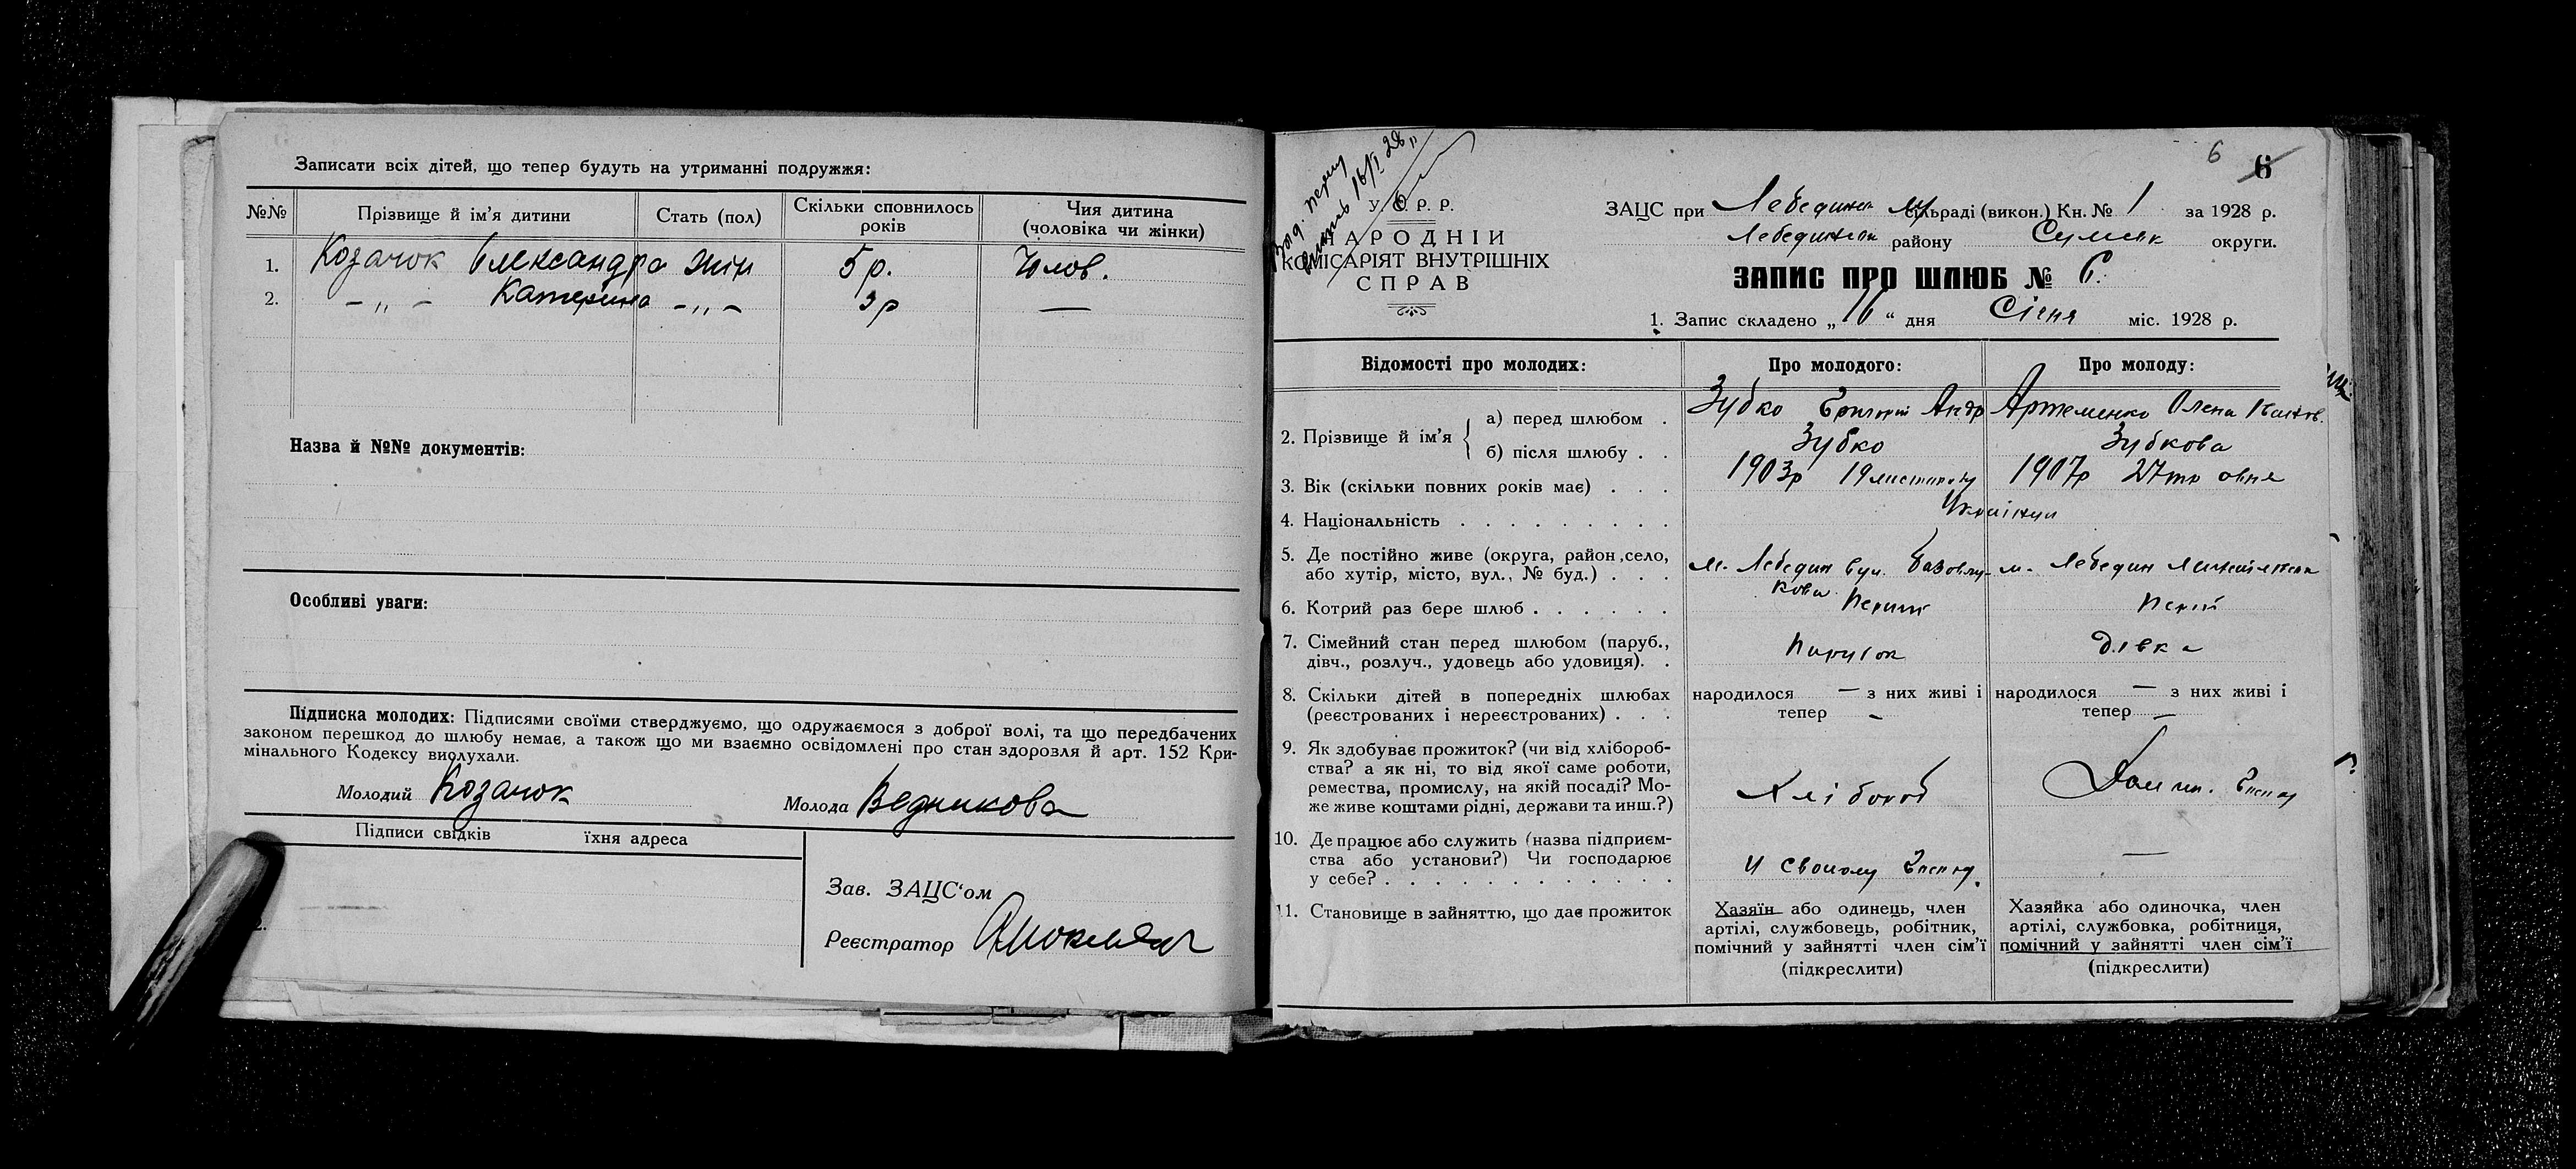 Записати всіх дітей, що тепер будуть на утриманні подружжя:
№№ Прізвище й ім'я дитини Стать (пол) Скільки сповнилось років Чия дитина (чоловіка чи жінки)
1. Козачок Олександра жін 5 р. Чолов.
2. – „ – Катерина – „ – 3 р —
Назва й №№ документів:
Особливі уваги:
Підписка молодих: Підписями своїми стверджуємо, що одружаємося з доброї волі, та що передбачених
законом перешкод до шлюбу немає, а також що ми взаємно освідомлені про стан здоровля й арт. 152 Кри-
мінального Кодексу вислухали.
Молодий Козачок Молода Ведникова
Підписи свідків їхня адреса
Зав. ЗАЦС'ом
Реєстратор
6 6
У. С. Р. Р.
НАРОДНІЙ
КОМІСАРІЯТ ВНУТРІШНІХ
СПРАВ
ЗАЦС при Лебединск сільраді (викон.) Кн. № 1 за 1928 р.
Лебединськ району Сумськ округи.
ЗАПИС ПРО ШЛЮБ № 6.
1. Запис складено „16“ дня Січня міс. 1928 р.
Відомості про молодих: Про молодого: Про молоду:
2. Прізвище й ім'я
а) перед шлюбом . Зубко Григорій Андр Артеменко Олена
б) після шлюбу . . Зубко Зубкова
3. Вік (скільки повних років має) . . . 1903р 19 листопаду 1907р 27
4. Національність . . . . . . . . . Українці
5. Де постійно живе (округа, район, село,
або хутір, місто, вул., № буд.) . . .
м. Лебедин вул.
м. Лебедин
6. Котрий раз бере шлюб . . . . . . Перший Перш
7. Сімейний стан перед шлюбом (паруб.,
дівч., розлуч., удовець або удовиця). .
Парубок Дівка
8. Скільки дітей в попередніх шлюбах
(реєстрованих і нереєстрованих) . . .
народилося — з них живі і
тепер –
народилося — з них живі і
тепер –
9. Як здобуває прожиток? (чи від хлібороб-
ства? а як ні, то від якої саме роботи,
ремества, промислу, на якій посаді? Мо-
же живе коштами рідні, держави та инш.?)
Хлібороб
Домашн. Господ
10. Де працює або служить (назва підприєм-
ства або установи?) Чи господарює
у себе? . . . . . . . . . . . .
У своєму Господ.
—
11. Становище в зайняттю, що дає прожиток
Хазяїн або одинець, член
артілі, службовець, робітник,
помічний у зайнятті член сім'ї
(підкреслити)
Хазяйка або одиночка, член
артілі, службовка, робітниця,
помічний у зайнятті член сім'ї
(підкреслити)